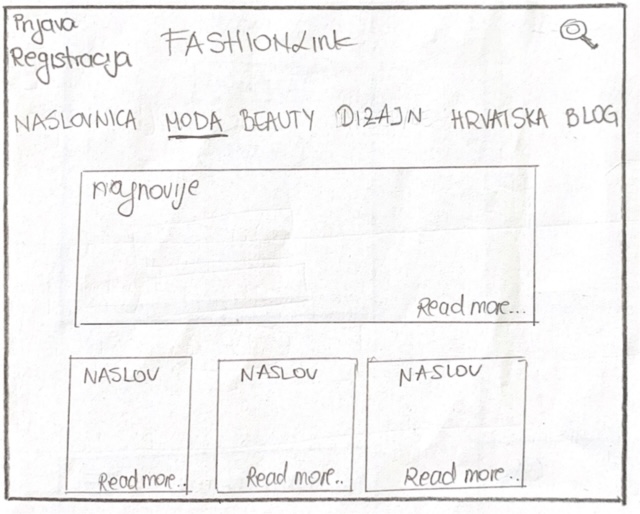 Prijava
Registracija
FASHIONLink
NASLOVNICA MODA BEAUTY DIZAJN HRVATSKA BLOG
najnovije
Read more...
NASLOV NASLOV NASLOV
Read more.. Read more.. Read more...